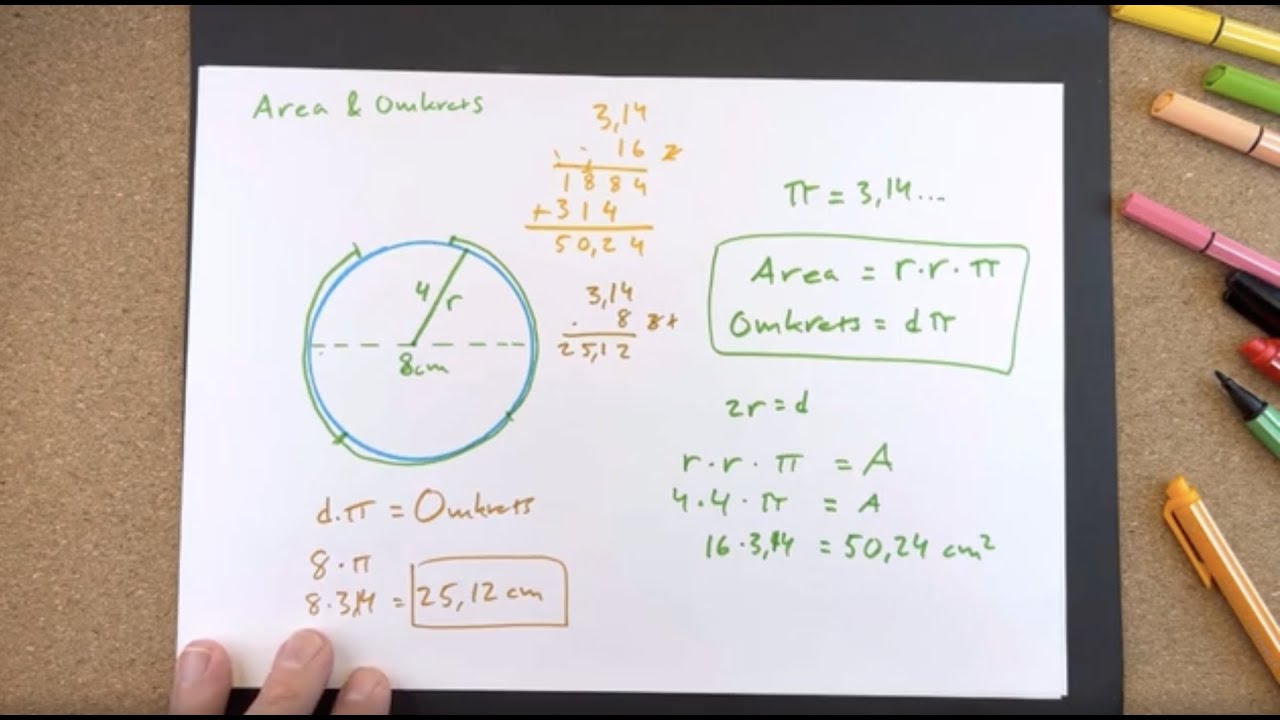 Area & Omkrets
3,14
· 16 2
1884
+314
50,24
3,14
· 8 3+
25,12
π = 3,14...
Area = r·r·π
Omkrets = dπ
4
r
8cm
2r = d
r·r·π = A
4·4·π = A
16·3,14 = 50,24 cm²
d·π = Omkrets
8·π
8·3,14 = 25,12 cm